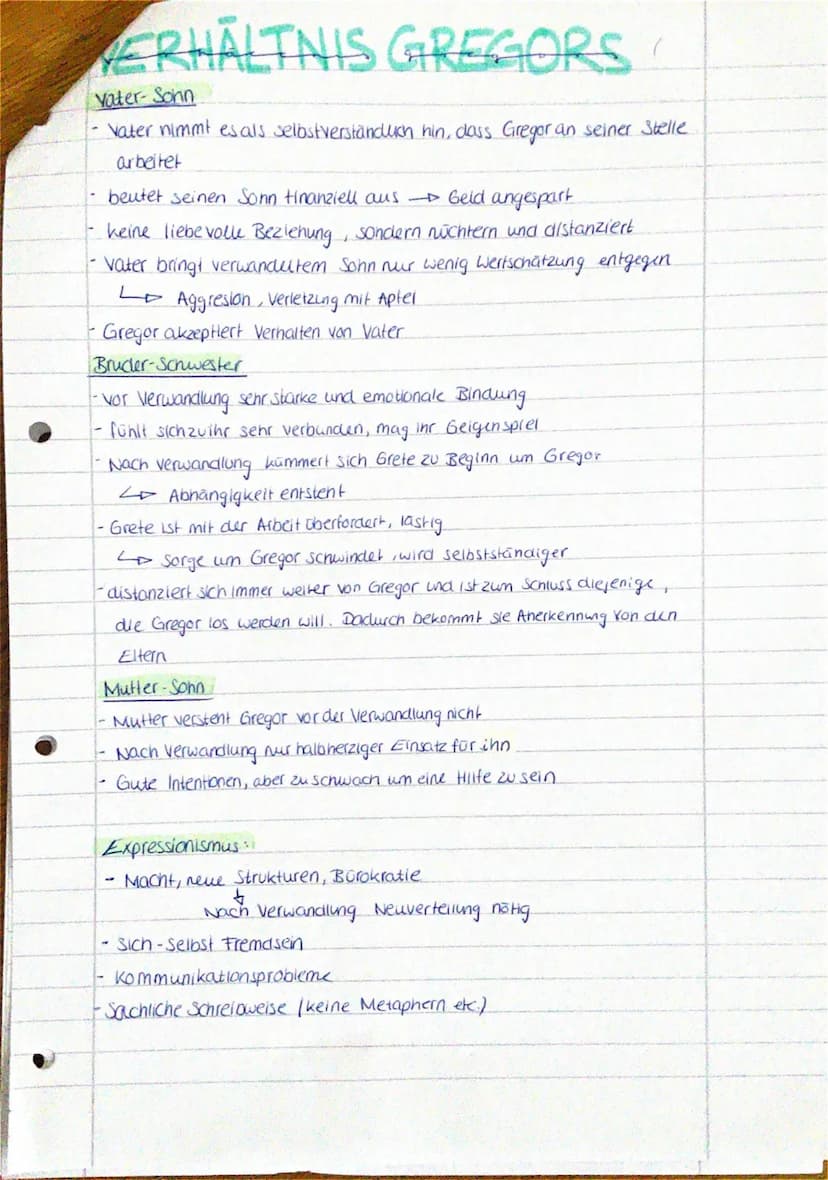 VERHÄLTNIS GREGORS
Vater-Sohn
- Vater nimmt es als selbstverständlich hin, dass Gregor an seiner Stelle
arbeitet
- beutet seinen Sohn finanziell aus → Geld angespart
- keine liebevolle Beziehung, sondern nüchtern und distanziert
- Vater bringt verwandeltem Sohn nur wenig Wertschätzung entgegen
↳ Aggresion, Verletzung mit Apfel
- Gregor akzeptiert Verhalten von Vater
Bruder-Schwester
- vor Verwandlung sehr starke und emotionale Bindung
- fühlt sich zu ihr sehr verbunden, mag ihr Geigenspiel
- Nach Verwandlung kümmert sich Grete zu Beginn um Gregor
↳ Abhängigkeit entsteht
- Grete ist mit der Arbeit überfordert, lästig
↳ Sorge um Gregor schwindet, wird selbstständiger
- distanziert sich immer weiter von Gregor und ist zum Schluss diejenige,
die Gregor los werden will. Dadurch bekommt sie Anerkennung von den
Eltern
Mutter-Sohn
- Mutter versteht Gregor vor der Verwandlung nicht
- Nach Verwandlung nur halbherziger Einsatz für ihn
- Gute Intentionen, aber zu schwach um eine Hilfe zu sein
Expressionismus:
- Macht, neue Strukturen, Bürokratie
↓
Nach Verwandlung Neuverteilung nötig
- Sich-Selbst Fremdsein
- Kommunikationsprobleme
- Sachliche Schreibweise (keine Metaphern etc.)